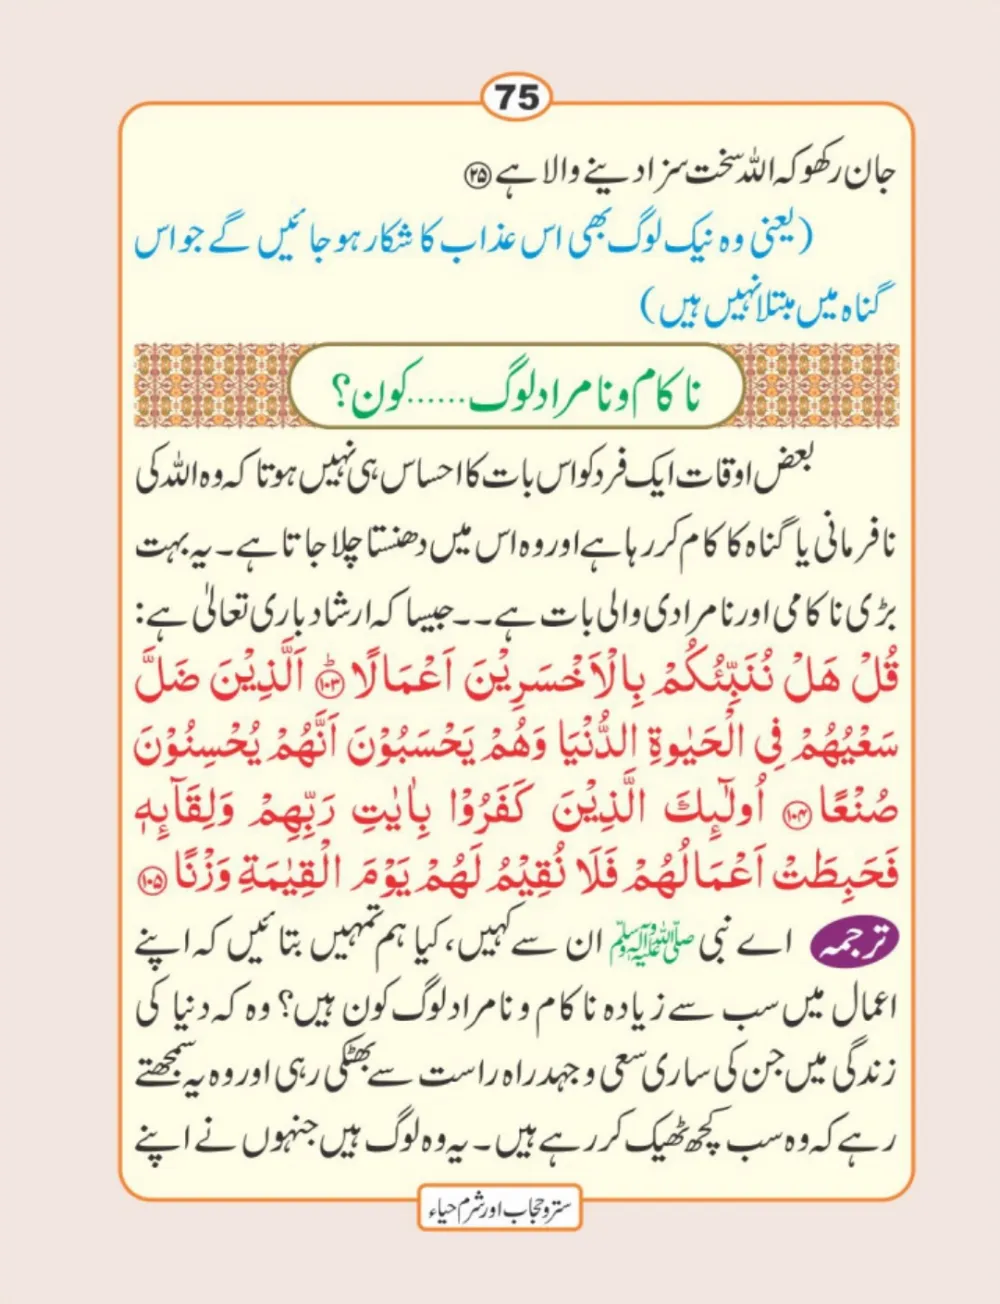 75
جان رکھو کہ اللہ سخت سزا دینے والا ہے ﴿۲۵﴾
(یعنی وہ نیک لوگ بھی اس عذاب کا شکار ہو جائیں گے جو اس
گناہ میں مبتلا نہیں ہیں)
ناکام و نامراد لوگ......کون؟
بعض اوقات ایک فرد کو اس بات کا احساس ہی نہیں ہوتا کہ وہ اللہ کی
نافرمانی یا گناہ کا کام کر رہا ہے اور وہ اس میں دھنستا چلا جاتا ہے۔ یہ بہت
بڑی ناکامی اور نامرادی والی بات ہے۔۔جیسا کہ ارشاد باری تعالیٰ ہے:
قُلْ هَلْ نُنَبِّئُكُمْ بِالْاَخْسَرِيْنَ اَعْمَالًا ؕ﴿۱۰۳﴾ اَلَّذِيْنَ ضَلَّ
سَعْيُهُمْ فِى الْحَيٰوةِ الدُّنْيَا وَهُمْ يَحْسَبُوْنَ اَنَّهُمْ يُحْسِنُوْنَ
صُنْعًا ﴿۱۰۴﴾ اُولٰٓئِكَ الَّذِيْنَ كَفَرُوْا بِاٰيٰتِ رَبِّهِمْ وَلِقَآئِهٖ
فَحَبِطَتْ اَعْمَالُهُمْ فَلَا نُقِيْمُ لَهُمْ يَوْمَ الْقِيٰمَةِ وَزْنًا ﴿۱۰۵﴾
ترجمہ اے نبی ﷺ ان سے کہیں، کیا ہم تمہیں بتائیں کہ اپنے
اعمال میں سب سے زیادہ ناکام و نامراد لوگ کون ہیں؟ وہ کہ دنیا کی
زندگی میں جن کی ساری سعی و جہد راہ راست سے بھٹکی رہی اور وہ یہ سمجھتے
رہے کہ وہ سب کچھ ٹھیک کر رہے ہیں۔ یہ وہ لوگ ہیں جنہوں نے اپنے
ستر و حجاب اور شرم حیاء